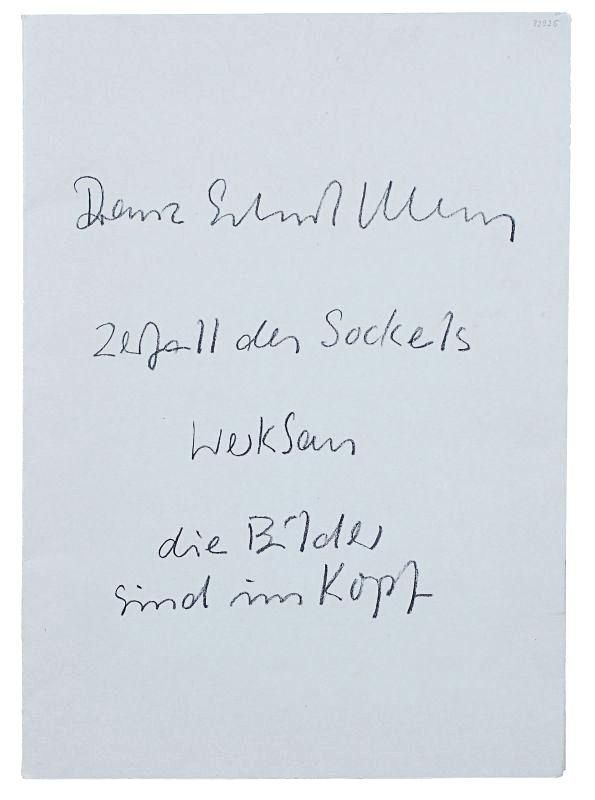 Franz Erhard Walther
Zerfall des Sockels
Werksam
die Bilder
sind im Kopf